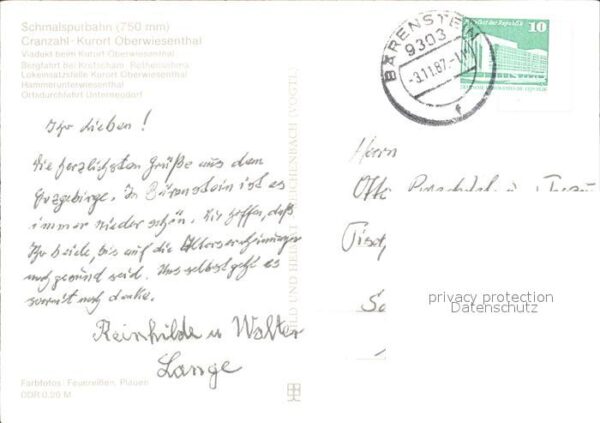 Schmalspurbahn (750 mm)
Cranzahl-Kurort Oberwiesenthal
Viadukt beim Kurort Oberwiesenthal
Bergfahrt bei Kretscham-Rothensehma
Lokeinsatzstelle Kurort Oberwiesenthal
Hammerunterwiesenthal
Ortsdurchfahrt Unterneudorf
Ihr Lieben!
Die herzlichsten Grüße aus dem
Erzgebirge. In Bärenstein ist es
immer wieder schön. Wir hoffen, daß
Ihr beide, bis auf die Alterserscheinungen
noch gesund seid. Uns selbst geht es
soweit noch danke.
Reinhilde u Walter
Lange
Farbfotos: Feuereißen, Plauen
DDR 0,20 M
BILD UND HEIMAT REICHENBACH (VOGTL)
BÄRENSTEIN
9303
-3.11.87-
f
Palast der Republik
10
Herrn
Otto
privacy protection
Datenschutz